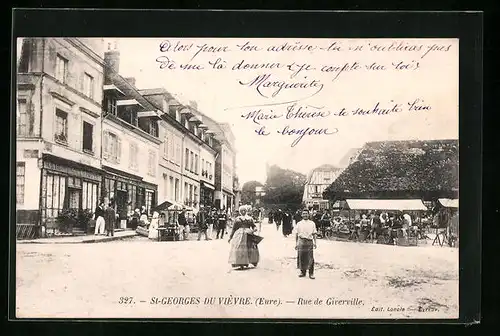 Alors pour ton adresse tu n'oublieras pas
de me la donner (je compte sur toi)
Marguerite
Marie Thérèse te souhaite bien
le bonjour
327. — St-GEORGES DU VIÈVRE. (Eure). — Rue de Giverville.
Édit. Lancle —